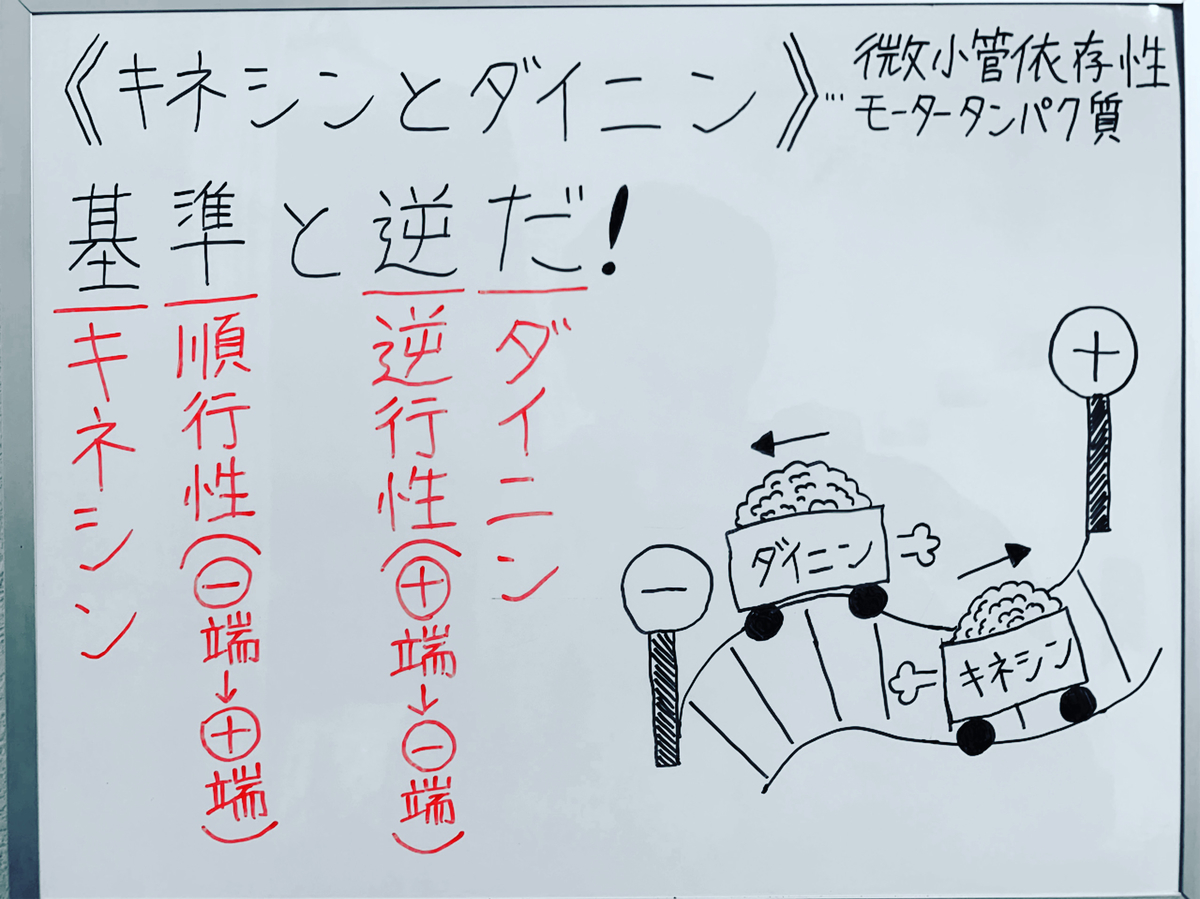 《キネシンとダイニン》…微小管依存性
モータータンパク質
基準と逆だ!
キネシン
順行性(⊖端→⊕端)
逆行性(⊕端→⊖端)
ダイニン
⊕
⊖
ダイニン
キネシン